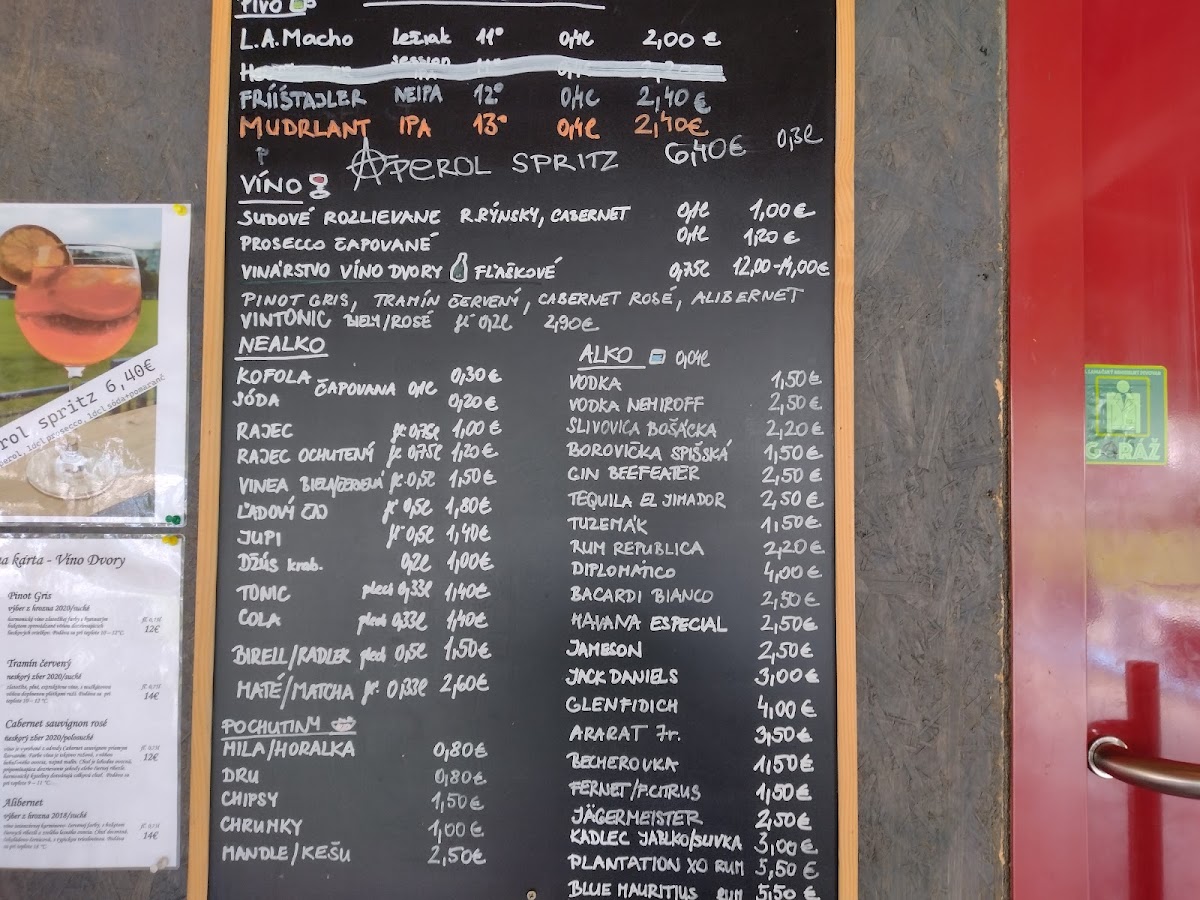 PIVO
L.A.Macho ležiak 11° 0,4l 2,00 €
FRÍÍŠTAJLER NEIPA 12° 0,4l 2,40€
MUDRLANT IPA 13° 0,4l 2,40€
APEROL SPRITZ 6,40€ 0,3l
VÍNO
SUDOVÉ ROZLIEVANE R.RÝNSKY, CABERNET 0,1l 1,00€
PROSECCO ČAPOVANÉ 0,1l 1,20€
VINÁRSTVO VÍNO DVORY FĽAŠKOVÉ 0,75l 12,00-14,00€
PINOT GRIS, TRAMÍN ČERVENÝ, CABERNET ROSÉ, ALIBERNET
VINTONIC BIELY/ROSÉ fľ 0,2l 2,90€
NEALKO
KOFOLA ČAPOVANA 0,1l 0,30€
SÓDA 0,20€
RAJEC fľ 0,75l 1,00€
RAJEC OCHUTENÝ fľ 0,75l 1,20€
VINEA BIELA/ČERVENÁ fľ 0,5l 1,50€
ĽADOVÝ ČAJ fľ 0,5l 1,80€
JUPI fľ 0,5l 1,40€
DŽÚS krab. 0,2l 1,00€
TONIC plech 0,33l 1,40€
COLA plech 0,33l 1,40€
BIRELL/RADLER plech 0,5l 1,50€
MATÉ/MATCHA fľ. 0,33l 2,60€
POCHUTINY
MILA/HORALKA 0,80€
DRU 0,80€
CHIPSY 1,50€
CHRUMKY 1,00€
MANDLE/KEŠU 2,50€
ALKO 0,04l
VODKA 1,50€
VODKA NEMIROFF 2,50€
SLIVOVICA BOŠÁCKA 2,20€
BOROVIČKA SPIŠSKÁ 1,50€
GIN BEEFEATER 2,50€
TEQUILA EL JIMADOR 2,50€
TUZEMÁK 1,50€
RUM REPUBLICA 2,20€
DIPLOMÁTICO 4,00€
BACARDI BIANCO 2,50€
HAVANA ESPECIAL 2,50€
JAMESON 2,50€
JACK DANIELS 3,00€
GLENFIDICH 4,00€
ARARAT 7r. 3,50€
BECHEROVKA 1,50€
FERNET/F.CITRUS 1,50€
JÄGERMEISTER 2,50€
KADLEC JABLKO/SLIVKA 3,00€
PLANTATION XO RUM 5,50€
BLUE MAURITIUS RUM 5,50€
rol spritz 6,40€
erol, 1dcl prosecco, 1dcl sóda+pomaranč
na karta - Víno Dvory
Pinot Gris
výber z hrozna 2020/suché
12€
Tramín červený
neskorý zber 2020/suché
14€
Cabernet sauvignon rosé
neskorý zber 2020/polosuché
12€
Alibernet
výber z hrozna 2018/suché
14€